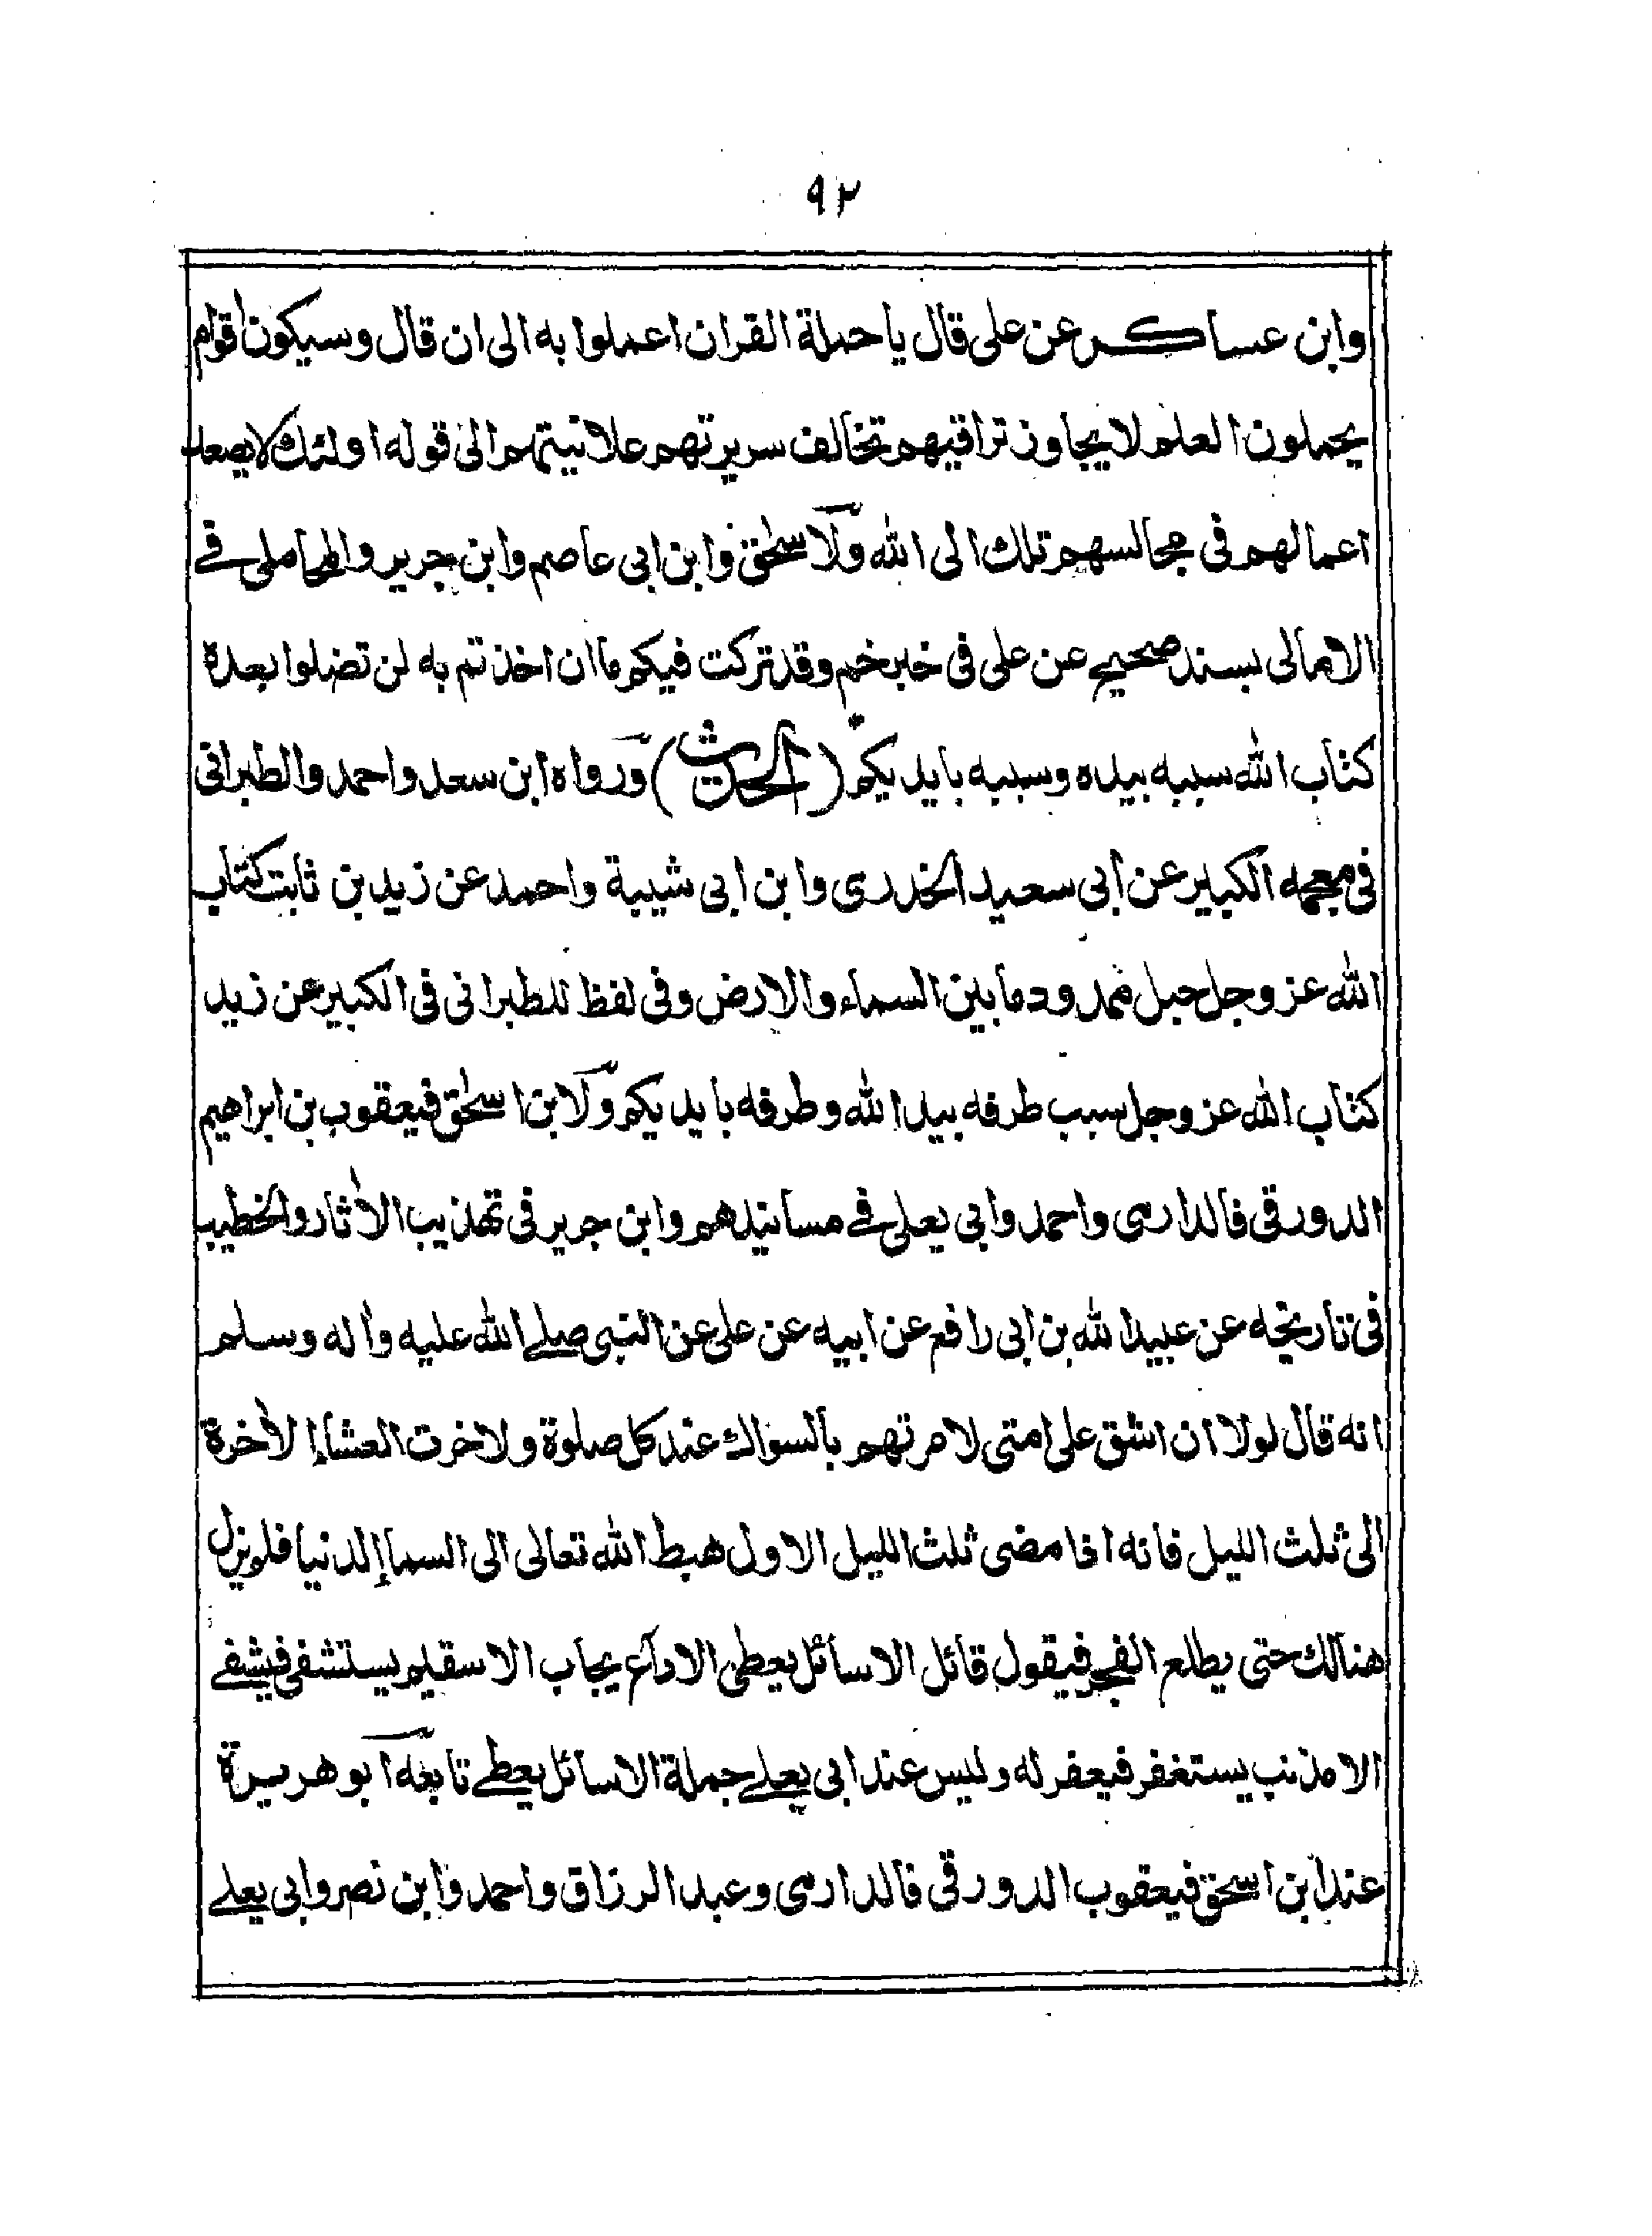 ٩٢
وابن عساكر عن على قال يا حملة القران اعملوا به الى ان قال وسيكون اقوام
يحملون العلم لا يجاوز تراقيهم تخالف سريرتهم علانيتهم الى قوله اولئك لا يصعد
اعمالهم فى مجالسهم تلك الى الله ولاسحٰق وابن ابى عاصم وابن جرير والمحاملى فے
الامالى بسند صحيح عن على فى خبر خم وقد تركت فيكم ما ان اخذتم به لن تضلوا بعدة
كتاب الله سببه بيده وسببه بايديكم (الحديث) ورواه ابن سعد واحمد والطبرانى
فى معجمه الكبير عن ابى سعيد الخدرى وابن ابى شيبة واحمد عن زيد بن ثابت كتاب
الله عز وجل حبل ممدود ما بين السماء والارض وفى لفظ للطبرانى فى الكبير عن زيد
كتاب الله عز وجل سبب طرفه بيد الله وطرفه بايديكم ولابن اسحٰق فيعقوب بن ابراهيم
الدورقى فالدارمى واحمد وابى يعلى فے مسانيدهم وابن جرير فى تهذيب الاثار والخطيب
فى تاريخه عن عبيد الله بن ابى رافع عن ابيه عن على عن النبى صلے الله عليه واله وسلم
انه قال لولا ان اشق على امتى لامرتهم بالسواك عند كل صلوة ولاخرت العشاء الاخرة
الى ثلث الليل فانه اذا مضى ثلث الليل الاول هبط الله تعالى الى السماء الدنيا فلم يزل
هنالك حتى يطلع الفجر فيقول قائل الا سائل يعطى الا داع يجاب الا سقيم يستشفى فيشفے
الا مذنب يستغفر فيغفر له وليس عند ابى يعلے جملة الا سائل يعطے تابعه ابو هريرة
عند ابن اسحق فيعقوب الدورقى فالدارمى وعبد الرزاق واحمد وابن نصر وابى يعلے